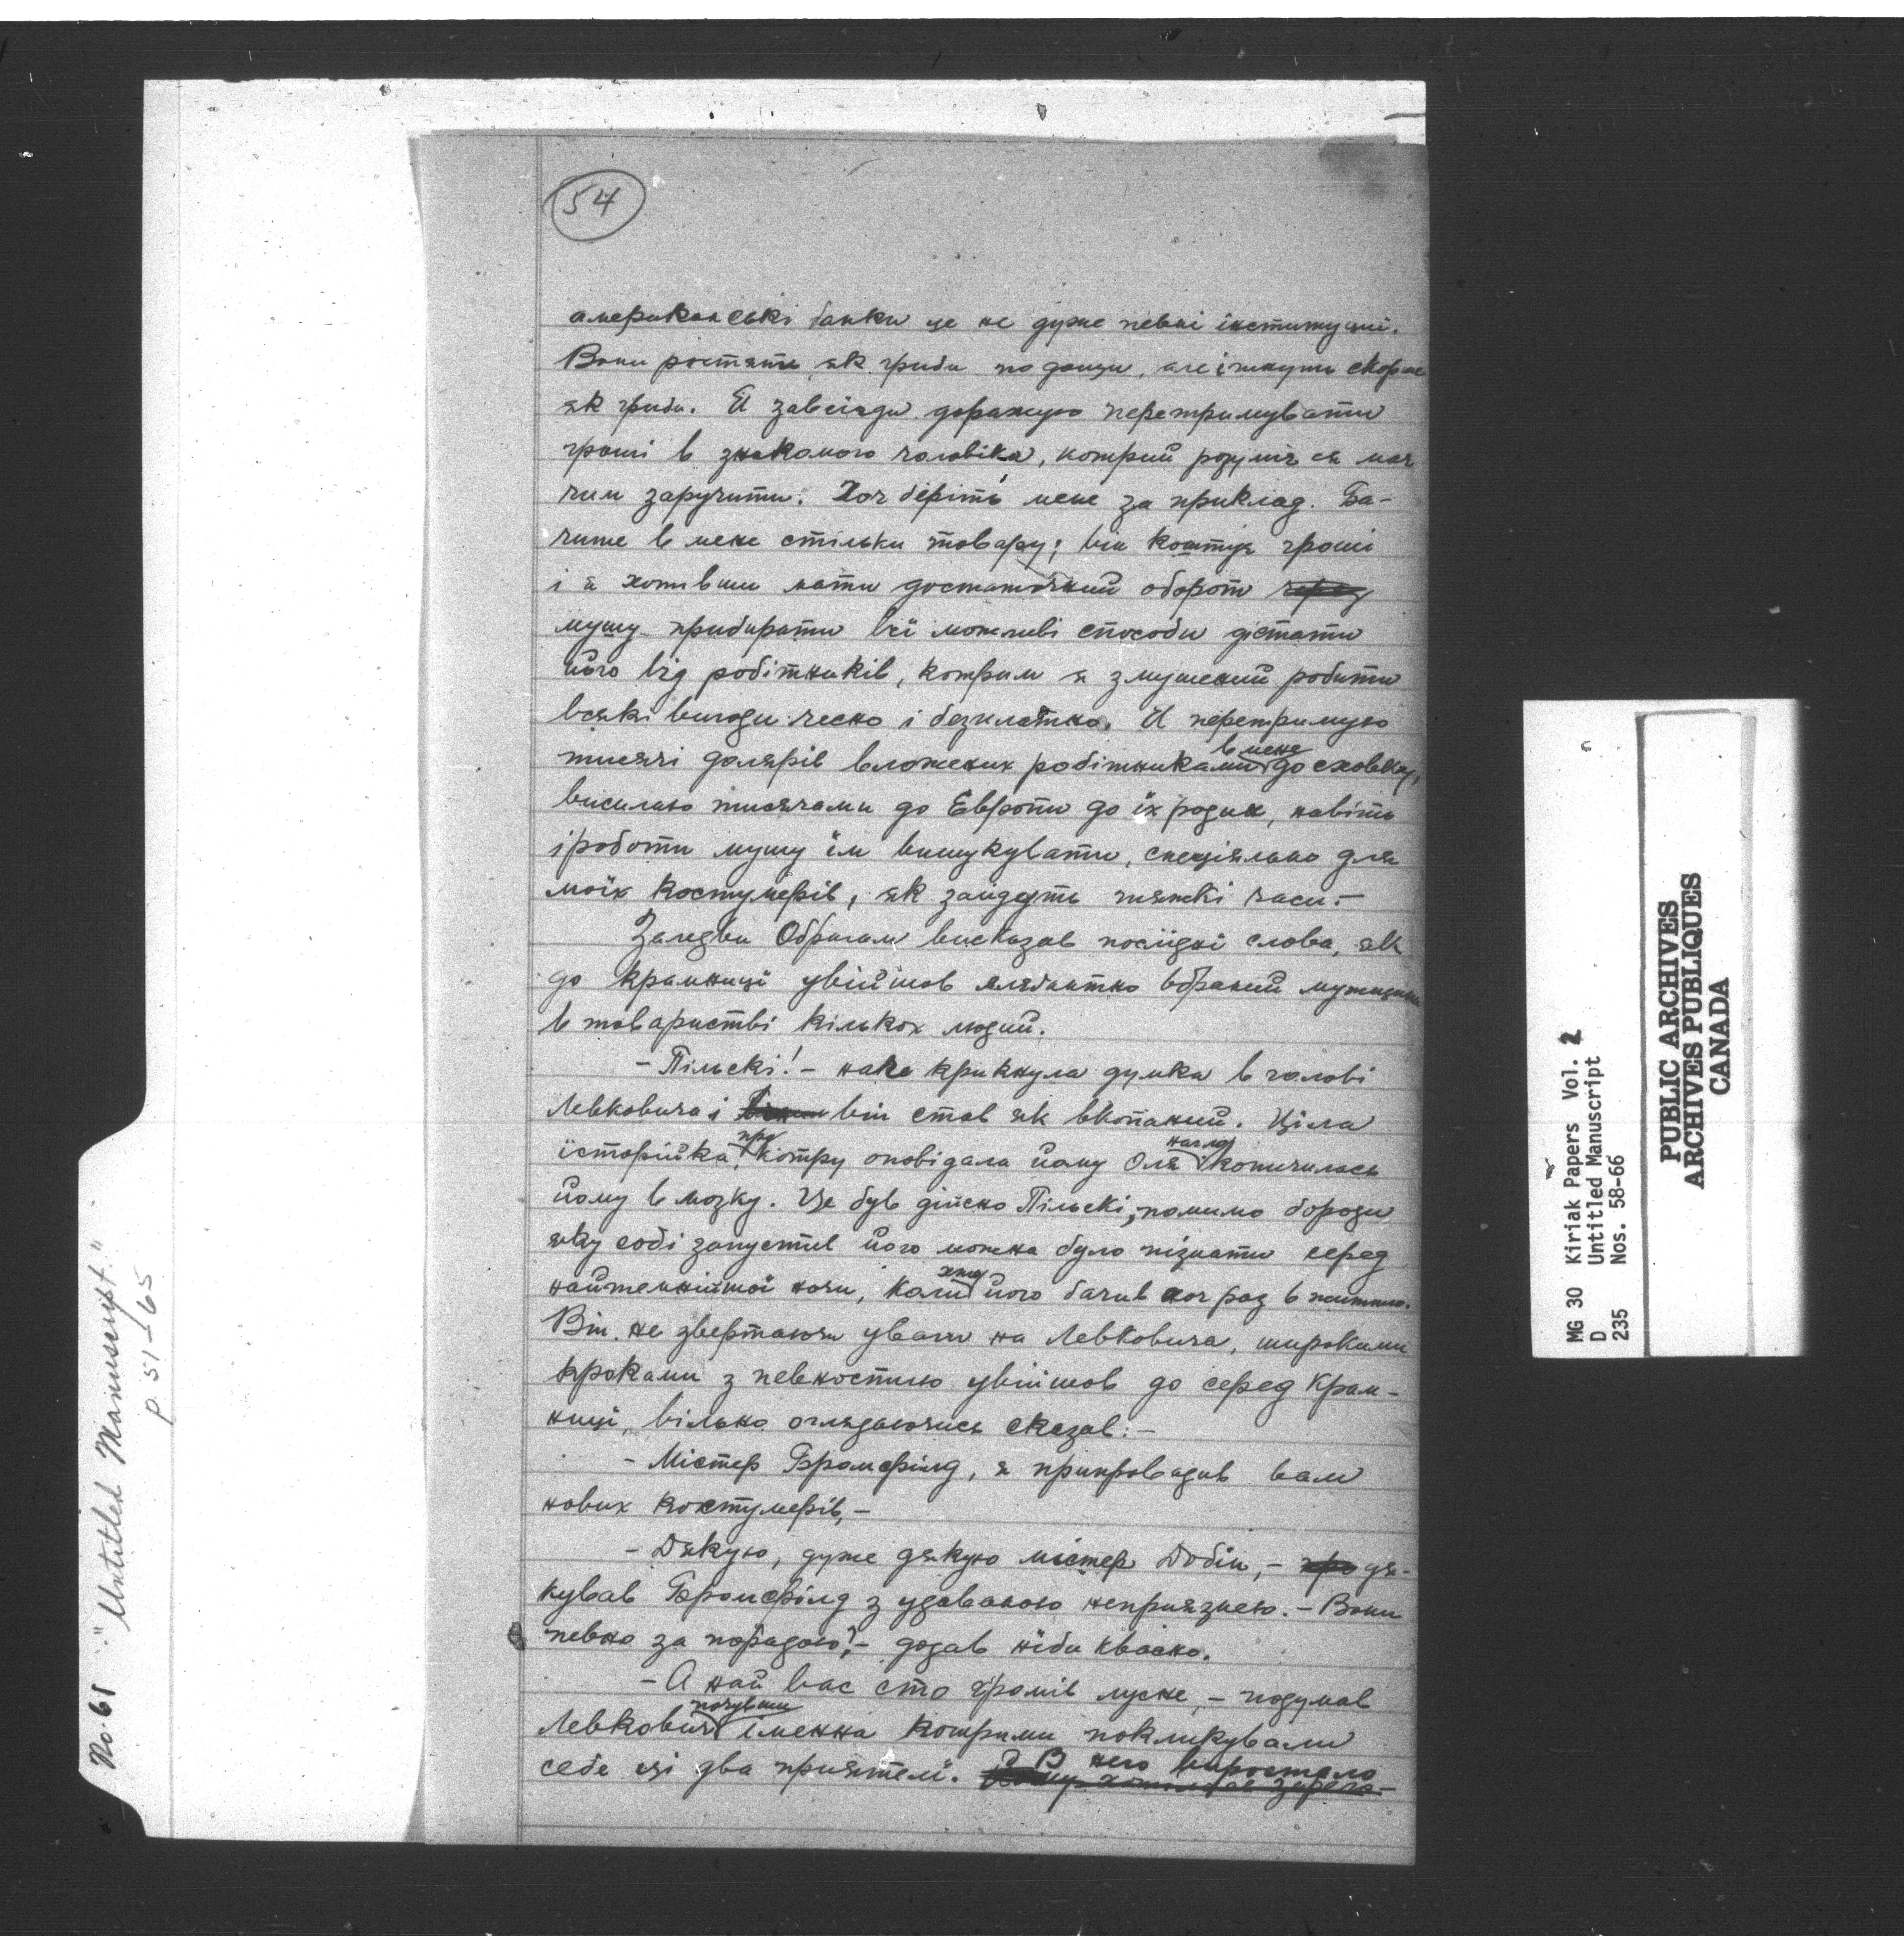 54
американські банки це не дуже певні інституциї.
Вони ростять як гриби по дощи, але і гинуть скорше
як гриби. Я завсіди доражую перетримувати
гроші в знакомого чоловіка, котрий розуміє ся має
чим заручити. Хоч беріть мене за приклад. Ба-
чите в мене стільки товару; він коштує гроші
і я хотівши мати достаточний оборот через
мушу прибирати всї можливі способи дістати
його від робітників, котрим я змушений робити
всякі вигоди чесно і безплатно. Я перетримую
в мене
тисячі долярів вложених робітниками до сховку,
висилаю тисячами до Европи до їх родин, навіть
і роботи мушу їм вишукувати, специяльно для
моїх костумерів, як зайдуть тяжкі часи.-
Заледви Обрагам висказав послїдні слова, як
до крамниці увійшов елєґантно вбраний мужщина
в товаристві кількох людий.
- Пільскі! - наче крикнула думка в голові
Левковича і він став як вкопаний. Ціла
про нагло
історийка, котру оповідала йому Оля копичилась
йому в мозку. Це був дійсно Пільскі, помимо бороди
яку собі запустив його можна було пізнати серед
хто
найтемнійшої ночи, коли його бачив хоч раз в життю.
Він не звертаючи уваги на Левковича, широкими
кроками з певностию увійшов до серед крам-
ниці, вільно оглядаючись сказав: -
- Містер Бромфілд, я припровадив вам
нових костумерів, -
- Дякую, дуже дякую містер Добін, - про дя-
кував Бромфілд з удаваною неприязнею. - Вони
певно за порадою? - додав ніби квасно.
- А най вас сто громів лусне, - подумав
почувши
Левкович іменна котрими покликували
себе ці два приятелї. В него виростало
No. 65 "Untitled Manuscript."
p. 51-65
MG 30 Kiriak Papers Vol. 2
D Untitled Manuscript
235 Nos. 58-66
PUBLIC ARCHIVES
ARCHIVES PUBLIQUES
CANADA